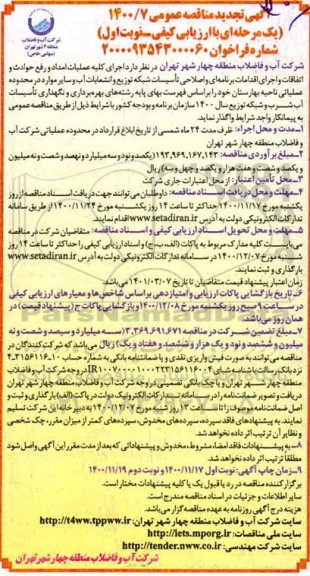 آگهی تجدید مناقصه عمومی ۱۴۰۰/۷
(یک مرحله‌ای با ارزیابی کیفی - نوبت اول)
شماره فراخوان ۲۰۰۰۰۹۳۵۴۳۰۰۰۰۶۰
شرکت آب و فاضلاب
منطقه ۴ شهر تهران
(سهامی خاص)
شرکت آب و فاضلاب منطقه چهار شهر تهران در نظر دارد اجرای کلیه عملیات امداد و رفع حوادث و
اتفاقات و اجرای اقدامات برنامه‌ای و اصلاحی تأسیسات شبکه توزیع و انشعابات آب و سایر موارد در محدوده
عملیاتی ناحیه بهارستان خود را براساس فهرست بهای پایه رشته‌های بهره‌برداری و نگهداری تأسیسات
آب شرب و شبکه توزیع سال ۱۴۰۰ سازمان برنامه و بودجه کشور با شرایط ذیل از طریق مناقصه عمومی
به پیمانکار واجد شرایط واگذار نماید.
۱-مدت و محل اجراء: ظرف مدت ۲۴ ماه شمسی از تاریخ ابلاغ قرارداد در محدوده عملیاتی شرکت آب
و فاضلاب منطقه چهار شهر تهران
۲-مبلغ برآوردی مناقصه: ۱۹۳,۹۶۹,۱۶۷,۱۴۳(یکصد و نود و سه میلیارد و نهصد و شصت و نه میلیون
و یکصد و شصت و هفت هزار و یکصد و چهل و سه) ریال
۳-محل تأمین اعتبار: از محل اعتبارات جاری شرکت
۴-مهلت و محل دریافت اسناد مناقصه: داوطلبان می‌توانند جهت دریافت اسناد مناقصه از روز
یکشنبه مورخ ۱۴۰۰/۱۱/۱۷ حداکثر تا ساعت ۱۴ روز یکشنبه مورخ ۱۴۰۰/۱۱/۲۴ از طریق سامانه
تدارکات الکترونیکی دولت به آدرس www.setadiran.ir اقدام نمایند.
۵-مهلت و محل تحویل اسناد ارزیابی کیفی و اسناد مناقصه: متقاضیان شرکت در مناقصه
می‌بایست کلیه مدارک مربوط به پاکات (الف، ب، ج) و اسناد ارزیابی کیفی را حداکثر تا ساعت ۱۴ روز
شنبه مورخ ۱۴۰۰/۱۲/۰۷ در سامانه تدارکات الکترونیکی دولت به آدرس www.setadiran.ir
بارگذاری و ثبت نمایند.
زمان اعتبار پیشنهاد قیمت متقاضیان تا تاریخ ۱۴۰۱/۰۳/۰۷ می‌باشد.
۶-تاریخ بازگشایی پاکات ارزیابی و امتیازدهی براساس شاخص‌ها و معیارهای ارزیابی کیفی
در ساعت ۹ صبح روز یکشنبه مورخ ۱۴۰۰/۱۲/۰۸ و بازگشایی پاکات ج (پیشنهاد قیمت) در
همان روز می‌باشد.
۷-مبلغ تضمین شرکت در مناقصه ۳,۳۶۹,۶۹۱,۶۷۱(سه میلیارد و سیصد و شصت و نه
میلیون و ششصد و نود و یک هزار و ششصد و هفتاد و یک) ریال می‌باشد که شرکت‌کنندگان در
مناقصه می‌توانند به صورت فیش واریزی نقدی و یا ضمانتنامه بانکی به شماره حساب
نزد بانک رسالت با شناسه شبای در وجه شرکت آب و فاضلاب
منطقه چهار شهر تهران و یا چک بانکی تضمینی در وجه شرکت آب و فاضلاب منطقه چهار شهر تهران
دریافت و تصویر ضمانتنامه را در سامانه تدارکات الکترونیک دولت در پاکت (الف) بارگذاری و ثبت و
اصل ضمانتنامه موصوف را تا ساعت ۱۳ روز شنبه مورخ ۱۴۰۰/۱۲/۰۷ به دبیرخانه این شرکت تسلیم
نمایند. به پیشنهادهای فاقد سپرده، سپرده‌های مخدوش، سپرده‌های کمتر از میزان مقرر، چک شخصی
و نظایر آن ترتیب اثر داده نخواهد شد.
۸-به پیشنهادات فاقد امضا، مشروط، مخدوش و پیشنهاداتی که بعد از مدت مقرر این آگهی واصل شود
مطلقاً ترتیب اثر داده نخواهد شد.
۹-زمان چاپ آگهی: نوبت اول ۱۴۰۰/۱۱/۱۷ و نوبت دوم ۱۴۰۰/۱۱/۱۹
برگزار کننده مناقصه در رد یا قبول یک یا کلیه پیشنهادات مختار است.
سایر اطلاعات و جزئیات در اسناد مناقصه مندرج است.
هزینه درج آگهی روزنامه به عهده مناقصه گزار می‌باشد.
سایت شرکت آب و فاضلاب منطقه چهار شهر تهران: http://t4ww.tppww.ir
سایت ملی مناقصات: http://iets.mporg.ir
سایت شرکت مهندسی: http://tender.nww.co.ir
شرکت آب و فاضلاب منطقه چهار شهر تهران